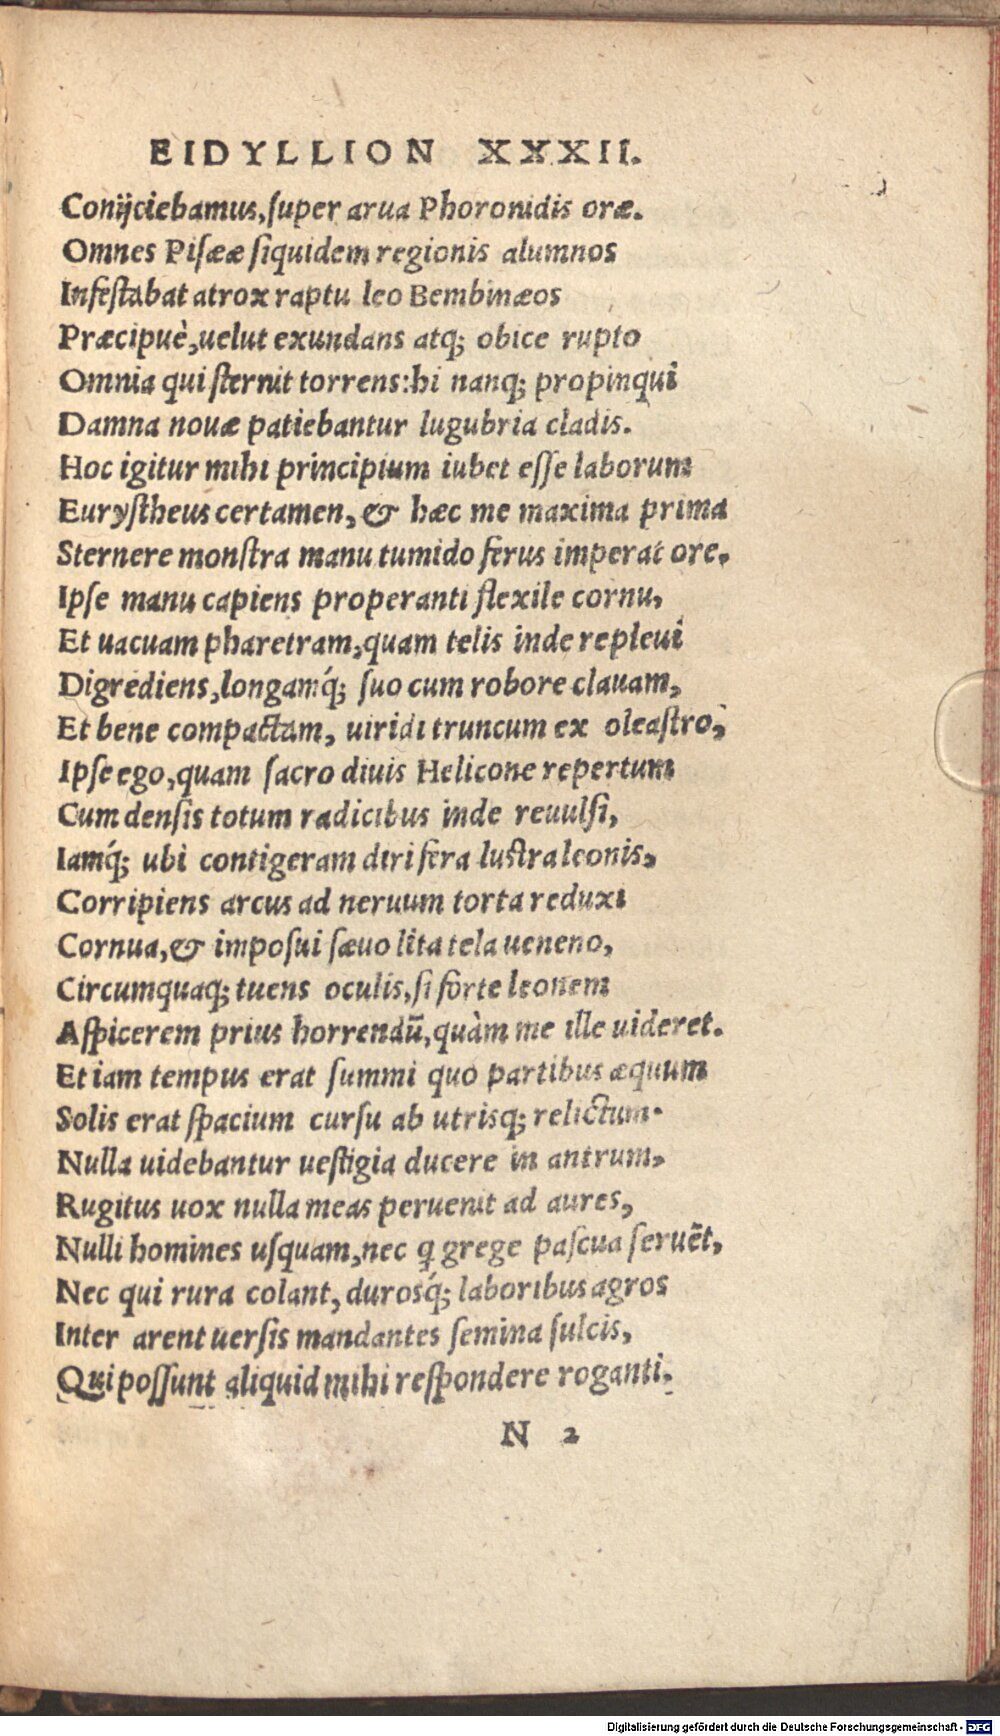 EIDYLLION XXXII.
Conijciebamus, super arua Phoronidis oræ.
Omnes Pisææ siquidem regionis alumnos
Infestabat atrox raptu leo Bembinæos
Præcipuè, uelut exundans atq; obice rupto
Omnia qui sternit torrens: hi nanq; propinqui
Damna nouæ patiebantur lugubria cladis.
Hoc igitur mihi principium iubet esse laborum
Eurystheus certamen, & hæc me maxima prima
Sternere monstra manu tumido ferus imperat ore.
Ipse manu capiens properanti flexile cornu,
Et uacuam pharetram, quam telis inde repleui
Digrediens, longamq́; suo cum robore clauam,
Et bene compactam, uiridi truncum ex oleastro,
Ipse ego, quam sacro diuis Helicone repertum
Cum densis totum radicibus inde reuulsi,
Iamq́; ubi contigeram diri fera lustra leonis,
Corripiens arcus ad neruum torta reduxi
Cornua, & imposui sæuo lita tela ueneno,
Circumquaq; tuens oculis, si forte leonem
Aspicerem prius horrendū, quàm me ille uideret.
Et iam tempus erat summi quo partibus æquum
Solis erat spacium cursu ab utrisq; relictum.
Nulla uidebantur uestigia ducere in antrum,
Rugitus uox nulla meas peruenit ad aures,
Nulli homines usquam, nec q̨ grege pascua seruēt,
Nec qui rura colant, durosq́; laboribus agros
Inter arent uersis mandantes semina sulcis,
Qui possunt aliquid mihi respondere roganti.
N 2
Digitalisierung gefördert durch die Deutsche Forschungsgemeinschaft - DFG